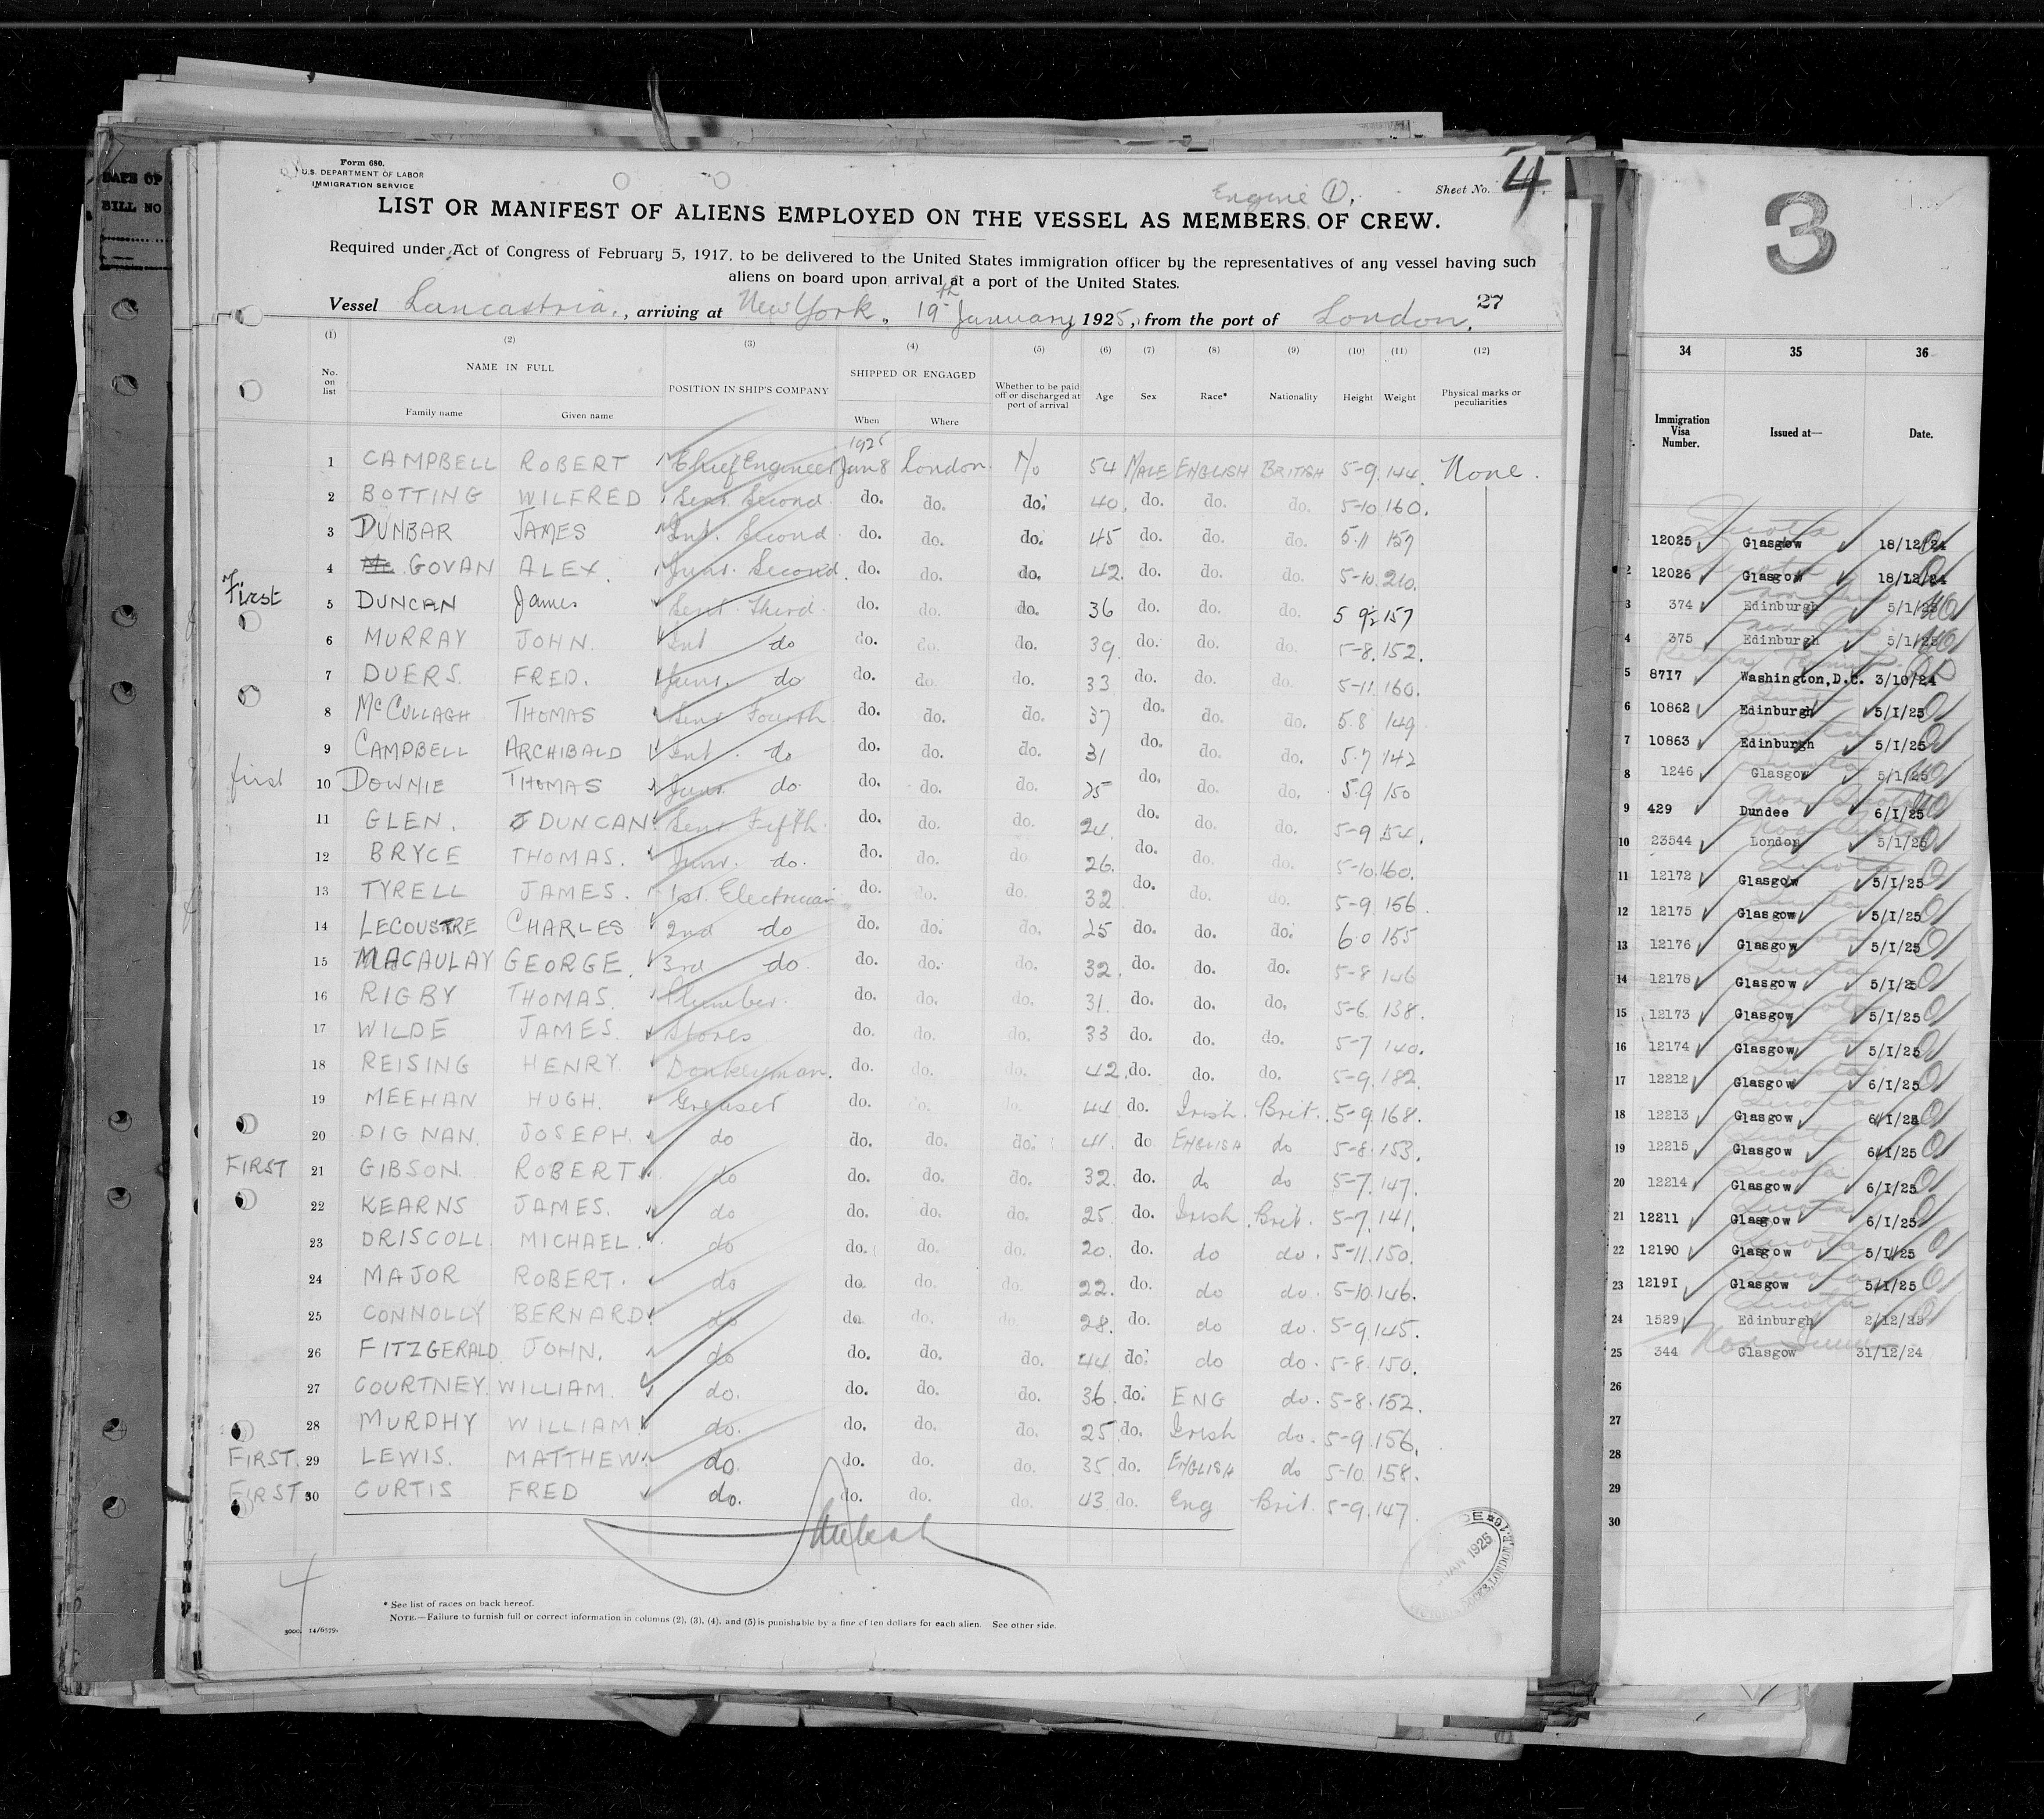 DATE OF
BILL NO
Form 680.
U.S. DEPARTMENT OF LABOR
IMMIGRATION SERVICE
Engine (1).
Sheet No. 4
LIST OR MANIFEST OF ALIENS EMPLOYED ON THE VESSEL AS MEMBERS OF CREW.
Required under Act of Congress of February 5, 1917, to be delivered to the United States immigration officer by the representatives of any vessel having such
aliens on board upon arrival at a port of the United States.
27
Vessel Lancastria, arriving at New York, 19th January 1925, from the port of London.
(1) (2) (3) (4) (5) (6) (7) (8) (9) (10) (11) (12)
No. on list NAME IN FULL POSITION IN SHIP'S COMPANY SHIPPED OR ENGAGED Whether to be paid off or discharged at port of arrival Age Sex Race* Nationality Height Weight Physical marks or peculiarities
Family name Given name When Where
1925
1 CAMPBELL ROBERT Chief Engineer Jan 8 London No 54 MALE ENGLISH BRITISH 5-9 144 None.
2 BOTTING WILFRED Senr. Second do. do. do. 40 do. do. do. 5-10 160.
3 DUNBAR JAMES Int. Second do. do. do. 45 do. do. do. 5.11 159
4 Mc GOVAN ALEX. Junr. Second do. do. do. 42 do. do. do. 5-10 210.
First 5 DUNCAN James Senr. Third do. do. do. 36 do. do. do. 5 9½ 157
6 MURRAY JOHN. Int do do. do. do. 39 do. do. do. 5-8. 152.
7 DUERS. FRED. Junr. do do. do. do. 33 do. do. do. 5-11. 160.
8 McCULLAGH THOMAS Senr Fourth do. do. do. 37 do. do. do. 5.8 149
9 CAMPBELL ARCHIBALD Int. do do. do. do. 31 do. do. do. 5.7 142
first 10 DOWNIE THOMAS Junr. do. do. do. do. 25 do. do. do. 5.9 150
11 GLEN. DUNCAN Senr Fifth do. do. do. 24 do. do. do. 5-9 154.
12 BRYCE THOMAS. Junr. do. do. do. do. 26. do. do. do. 5-10. 160.
13 TYRELL JAMES. 1st. Electrician do. do. do. 32 do. do. do. 5-9 156.
14 LECOUSTRE CHARLES 2nd do do. do. do. 25 do. do. do. 6.0 155
15 MACAULAY GEORGE. 3rd do. do. do. do. 32. do. do. do. 5-8 146
16 RIGBY THOMAS. Plumber. do. do. do. 31. do. do. do. 5-6. 138.
17 WILDE JAMES. Stores do. do. do. 33 do. do. do. 5-7 140.
18 REISING HENRY. Donkeyman. do. do. do. 42. do. do. do. 5-9. 182.
19 MEEHAN HUGH. Greaser do. do. do. 44 do. Irish. Brit. 5-9. 168.
20 DIGNAN. JOSEPH. do do. do. do. 41. do ENGLISH do 5-8. 153.
FIRST 21 GIBSON. ROBERT do do. do. do. 32. do. do do 5-7. 147.
22 KEARNS JAMES. do do. do. do. 25 do. Irish. Brit. 5-7. 141.
23 DRISCOLL. MICHAEL. do do. do. do. 20. do. do do. 5-11. 150.
24 MAJOR ROBERT. do do. do. do. 22. do. do do. 5-10. 146.
25 CONNOLLY BERNARD do do. do. do. 28. do. do do. 5-9. 145.
26 FITZGERALD. JOHN. do do. do. do. 44 do. do do. 5-8. 150.
27 COURTNEY. WILLIAM. do. do. do. do. 36. do. ENG do. 5-8. 152.
28 MURPHY WILLIAM do. do. do. do. 25 do. Irish do. 5-9. 156.
FIRST. 29 LEWIS. MATTHEW. do. do. do. do. 35 do. ENGLISH do 5-10. 158.
FIRST. 30 CURTIS FRED do. do. do. do. 43 do. Eng Brit. 5-9. 147.
JAN 1925
4
* See list of races on back hereof.
NOTE.—Failure to furnish full or correct information in columns (2), (3), (4), and (5) is punishable by a fine of ten dollars for each alien. See other side.
5000. 14/6579.
3
34 35 36
Immigration Visa Number. Issued at— Date.
Quota
12025 Glasgow 18/12/24
2 12026 Glasgow 18/12/24
3 374 Edinburgh 5/1/25
4 375 Edinburgh 5/1/25
Return Permit
5 8717 Washington, D.C. 3/10/24
6 10862 Edinburgh 5/1/25
7 10863 Edinburgh 5/1/25
8 1246 Glasgow 5/1/25
9 429 Dundee 6/1/25
10 23544 London 5/1/25
11 12172 Glasgow 5/1/25
12 12175 Glasgow 5/1/25
13 12176 Glasgow 5/1/25
14 12178 Glasgow 5/1/25
15 12173 Glasgow 5/1/25
16 12174 Glasgow 5/1/25
17 12212 Glasgow 6/1/25
18 12213 Glasgow 6/1/25
19 12215 Glasgow 6/1/25
20 12214 Glasgow 6/1/25
21 12211 Glasgow 6/1/25
22 12190 Glasgow 5/1/25
23 12191 Glasgow 5/1/25
24 1529 Edinburgh
25 344 Glasgow 31/12/24
26
27
28
29
30